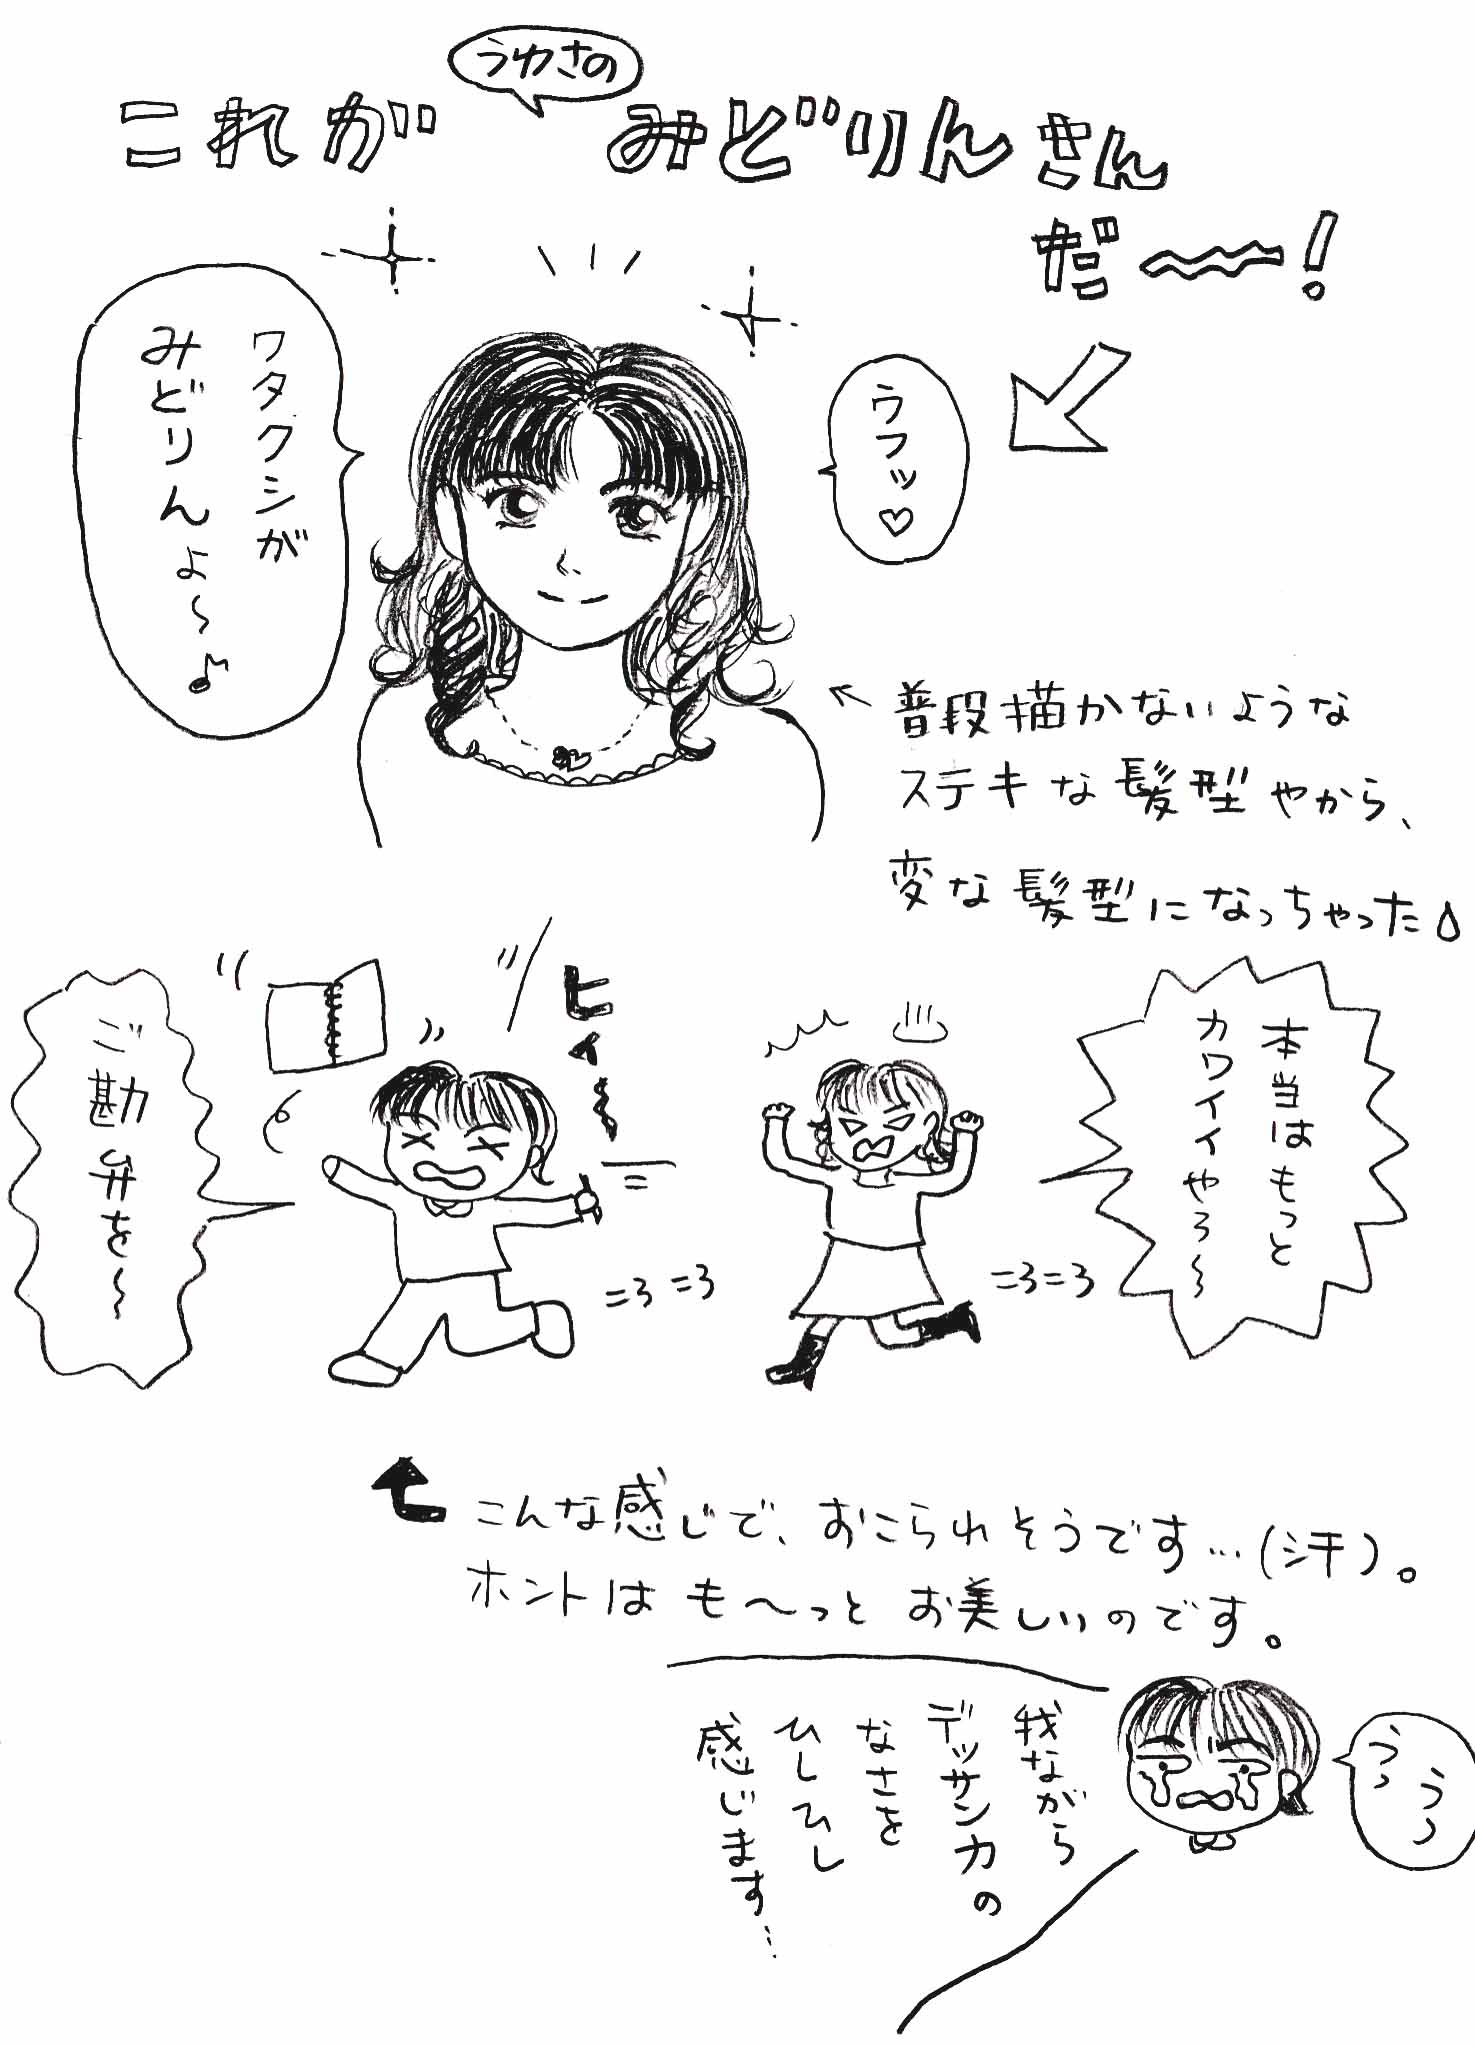 うわさの
これが みどりんさん
だ〜!
ワタクシが
みどりんよ〜♪
ウフッ♡
←普段描かないような
ステキな髪型やから、
変な髪型になっちゃった
ヒィ〜
ご勘弁を〜
本当はもっと
カワイイやろ〜
こんな感じで、おこられそうです…(汗)。
ホントは も〜っと お美しいのです。
うっ
うっ
我ながら
デッサン力の
なさを
ひしひし
感じます…